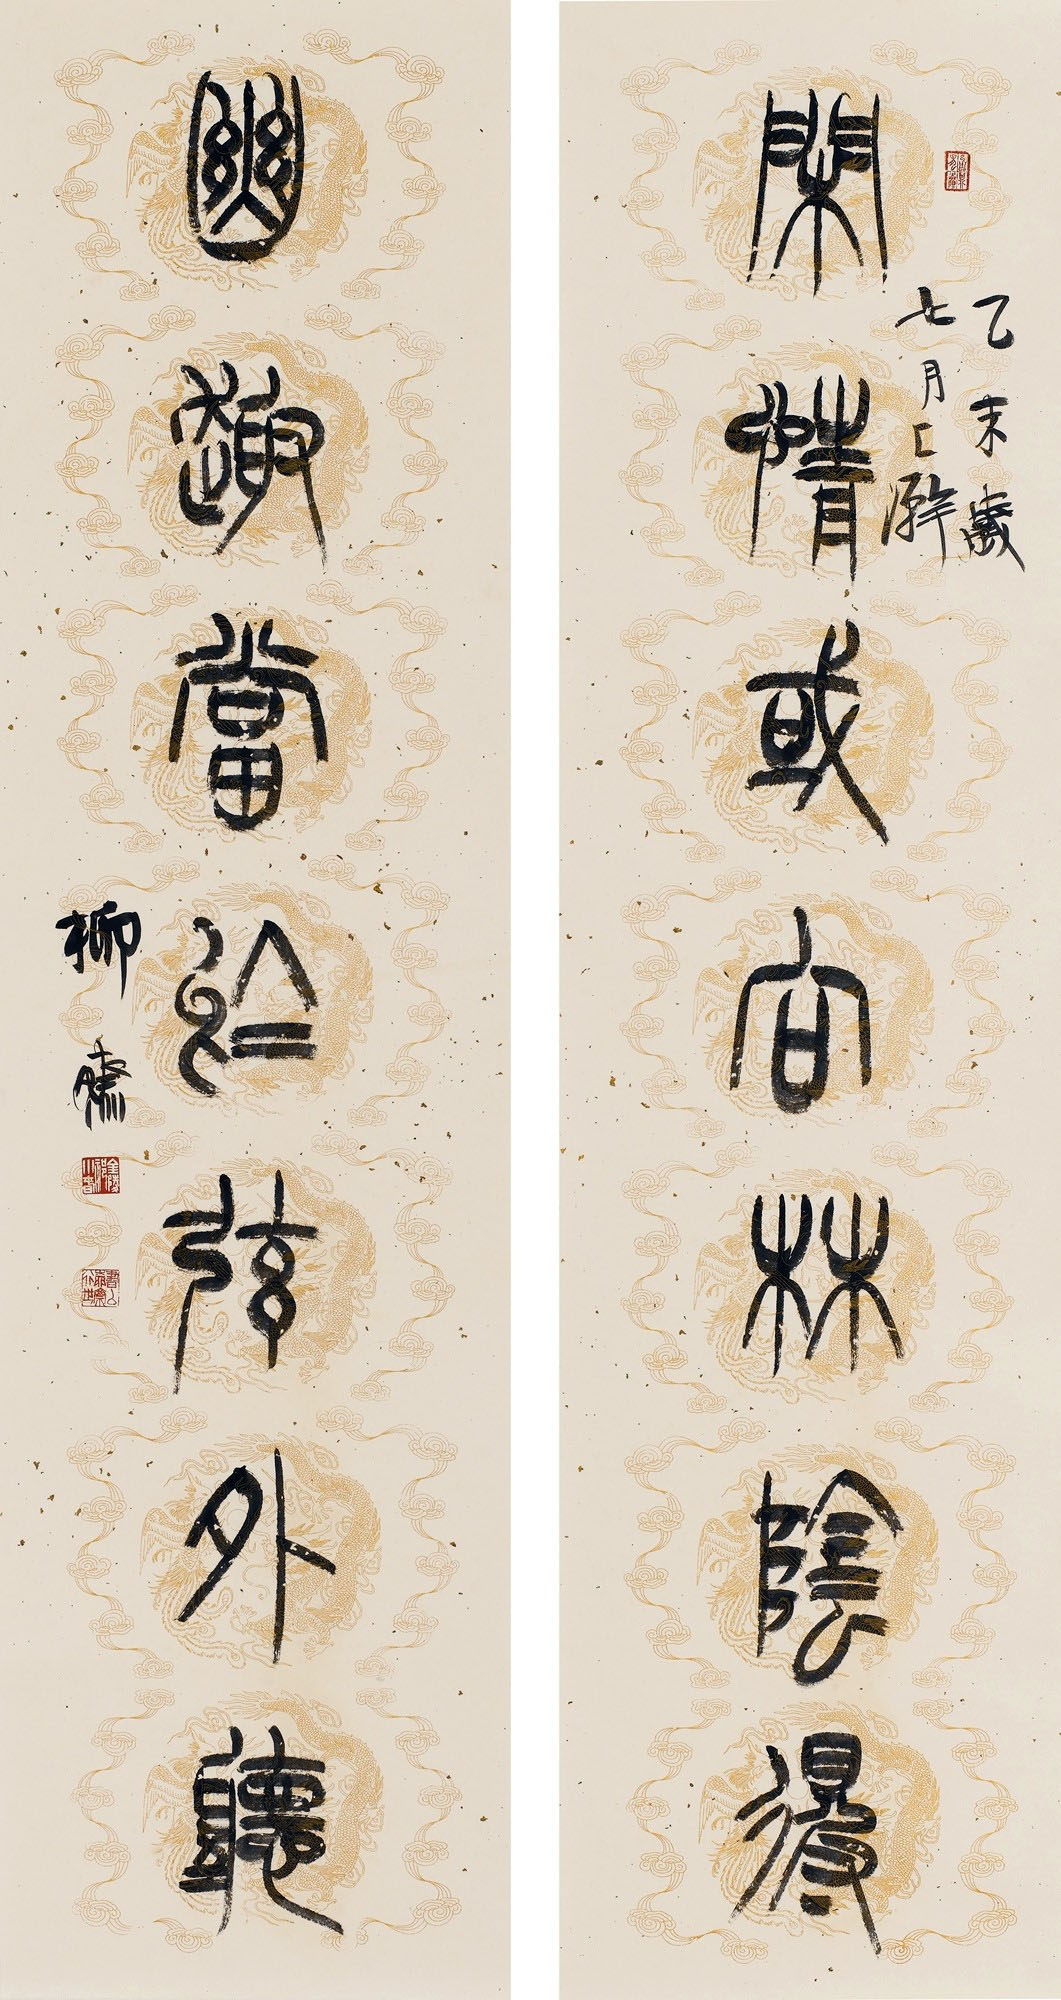 閑情或向林陰得
乙未歲
七月上澣
幽趣當於弦外聽
柳齋